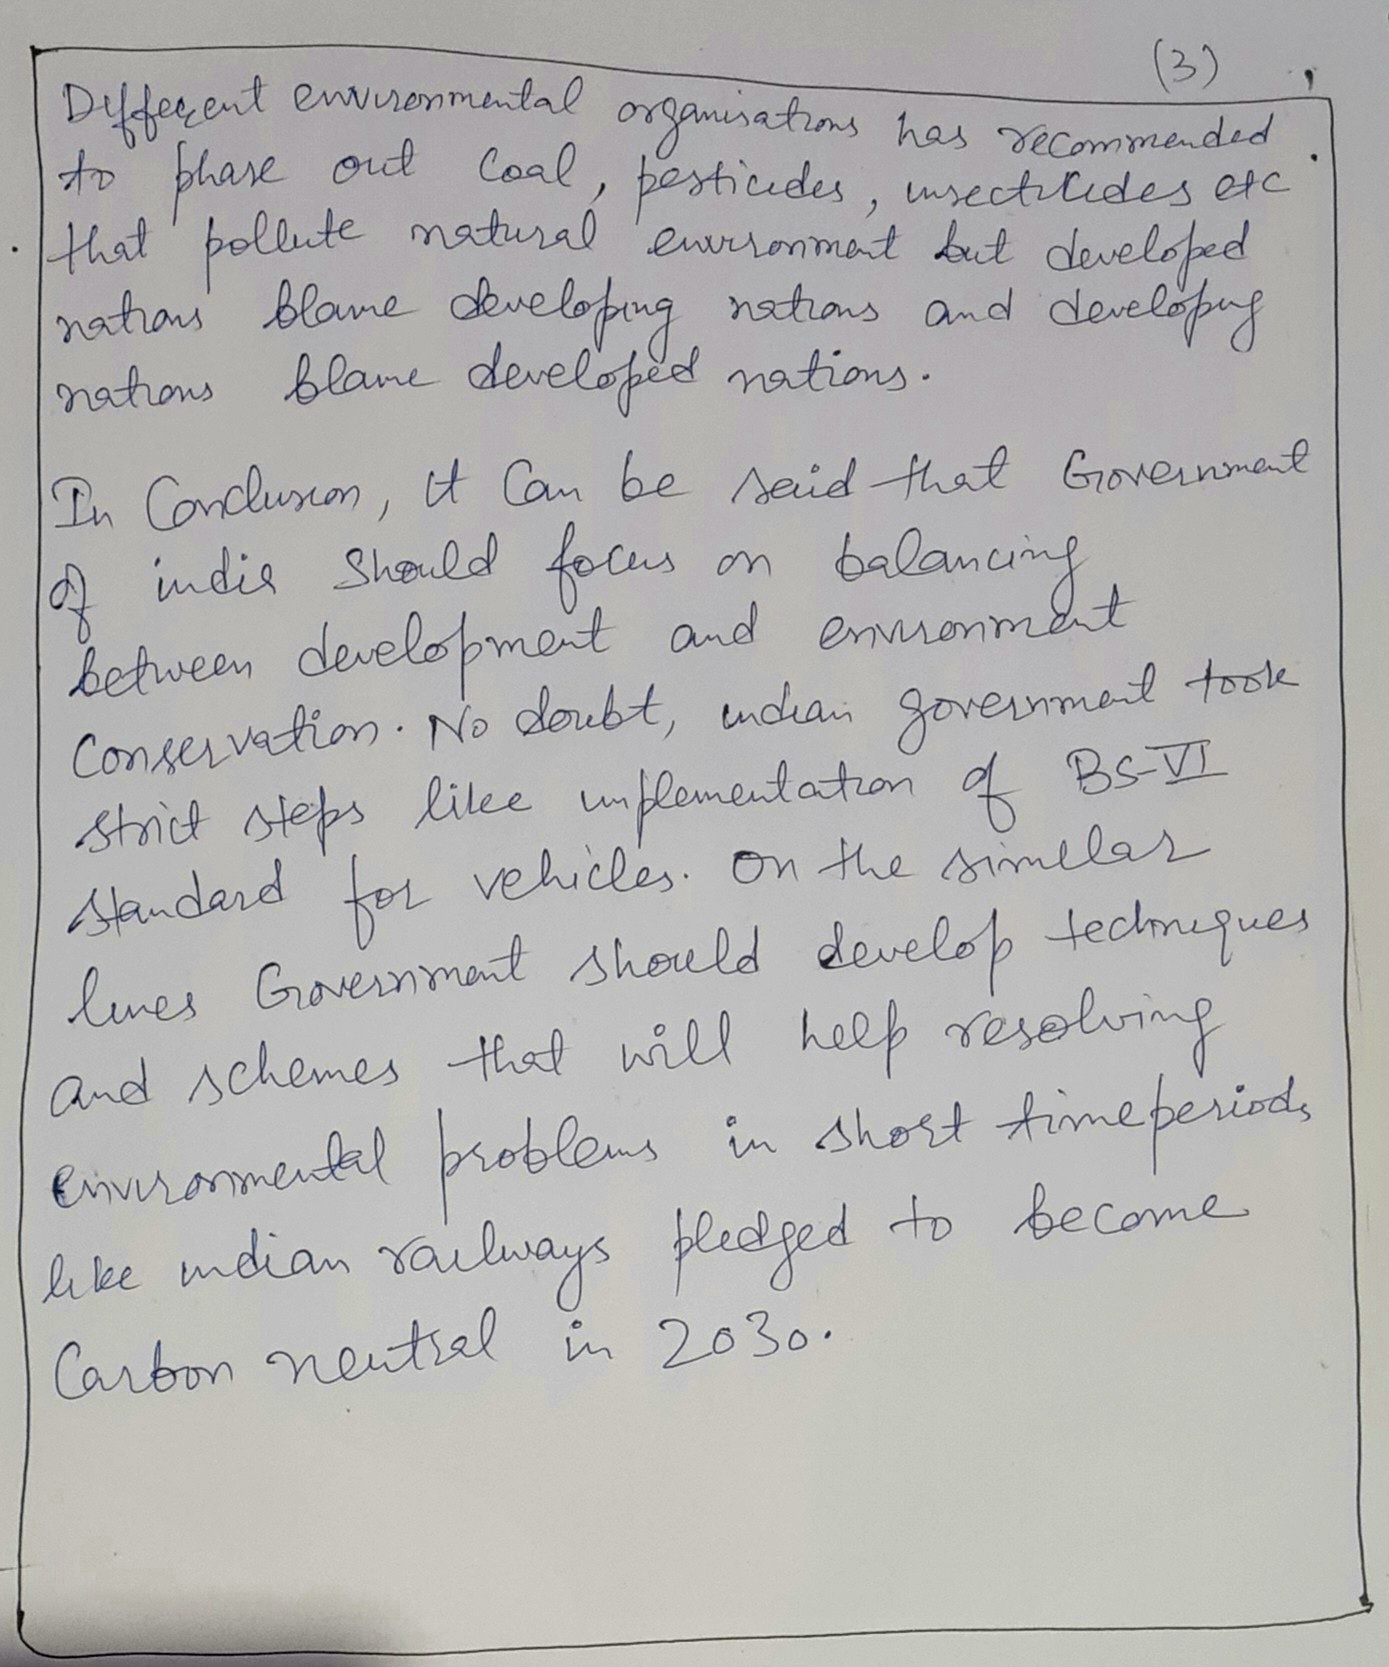 (3)
Different environmental organisations has recommended
to phase out Coal, pesticides, insecticides etc
that pollute natural environment but developed
nations blame developing nations and developing
nations blame developed nations.
In Conclusion, it Can be said that Government
of india Should focus on balancing
between development and environment
Conservation. No doubt, indian government took
strict steps like implementation of BS-VI
standard for vehicles. On the similar
lines Government should develop techniques
and schemes that will help resolving
environmental problems in short time periods
like indian railways pledged to become
Carbon neutral in 2030.